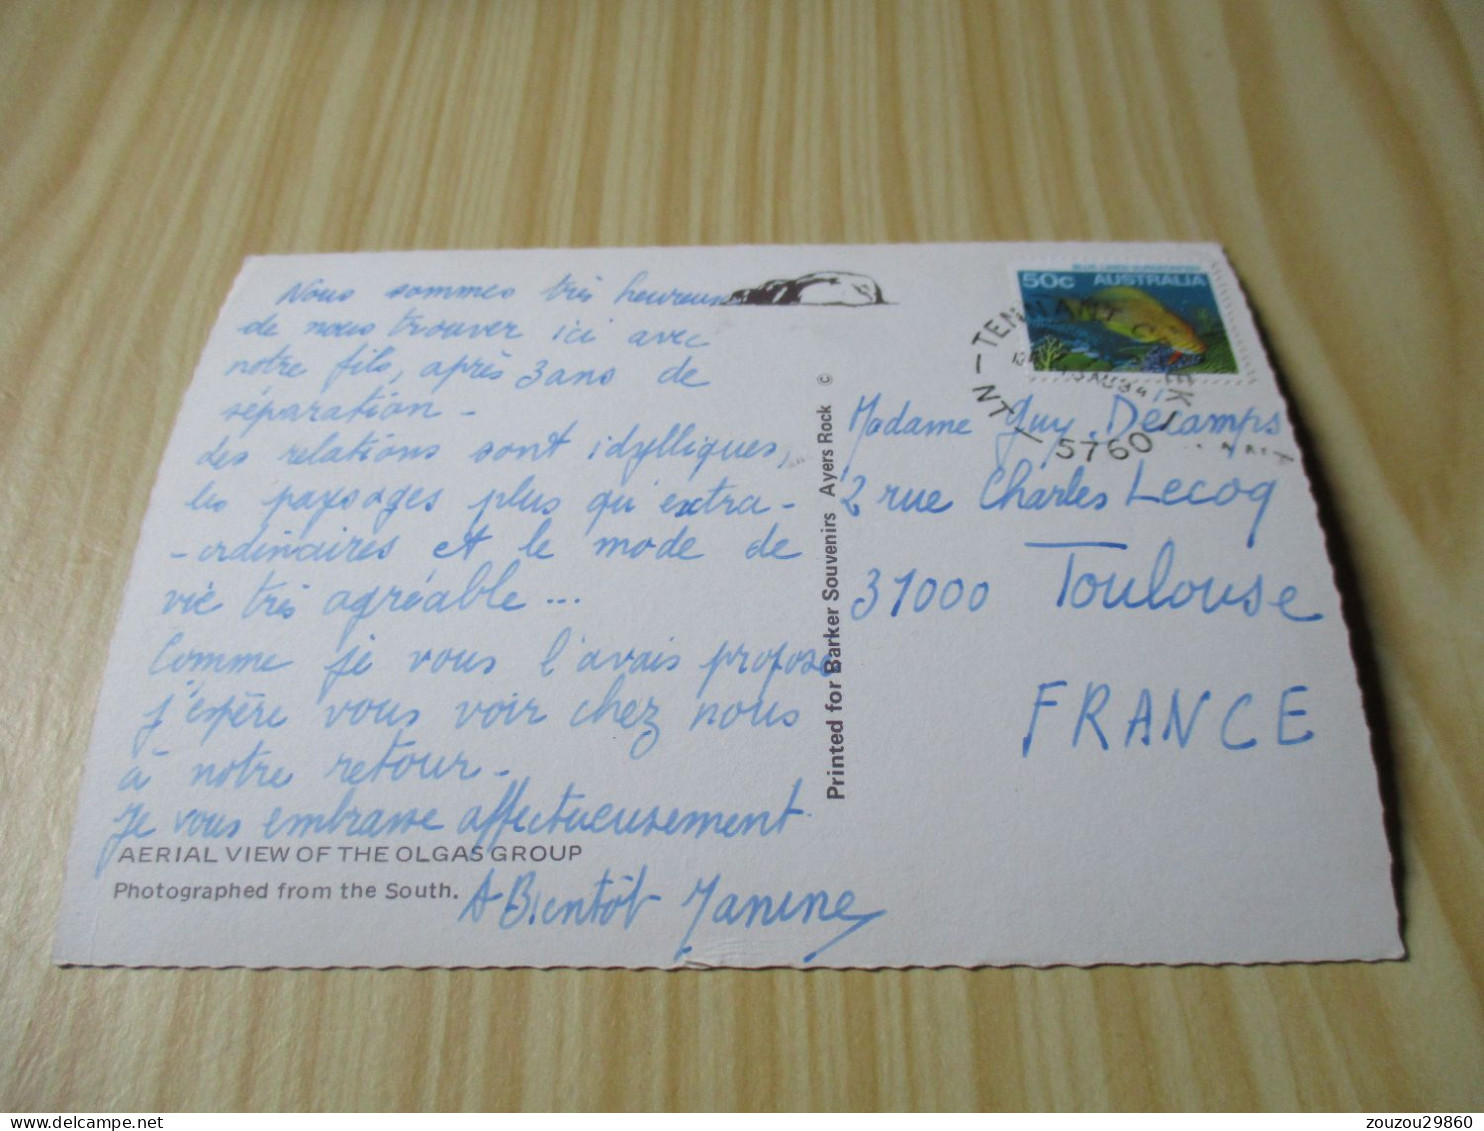 Nous sommes très heureux
de nous trouver ici avec
notre fils, après 3 ans de
séparation -
des relations sont idylliques,
les paysages plus qu'extra-
-ordinaires et le mode de
vie très agréable ...
Comme je vous l'avais proposé
j'espère vous voir chez nous
à notre retour -
Je vous embrasse affectueusement
A Bientôt Janine
AERIAL VIEW OF THE OLGAS GROUP
Photographed from the South.
Printed for Barker Souvenirs Ayers Rock ©
50c AUSTRALIA
TENNANT CREEK
NT - 5760
Madame Guy Décamps
2 rue Charles Lecoq
31000 Toulouse
FRANCE
zouzou29860